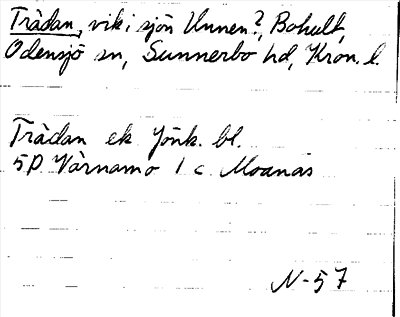 Trådan, vik i sjön Unnen?, Bohult,
Odensjö sn, Sunnerbo hd, Kron. l.
Trådan ek Jönk. bl.
5P Värnamo 1 c Moanäs
N-57